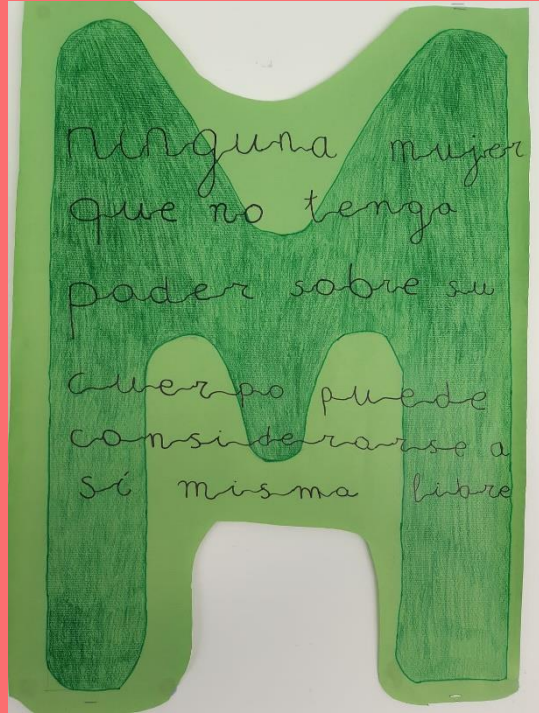 ninguna mujer
que no tenga
poder sobre su
cuerpo puede
considerarse a
sí misma libre